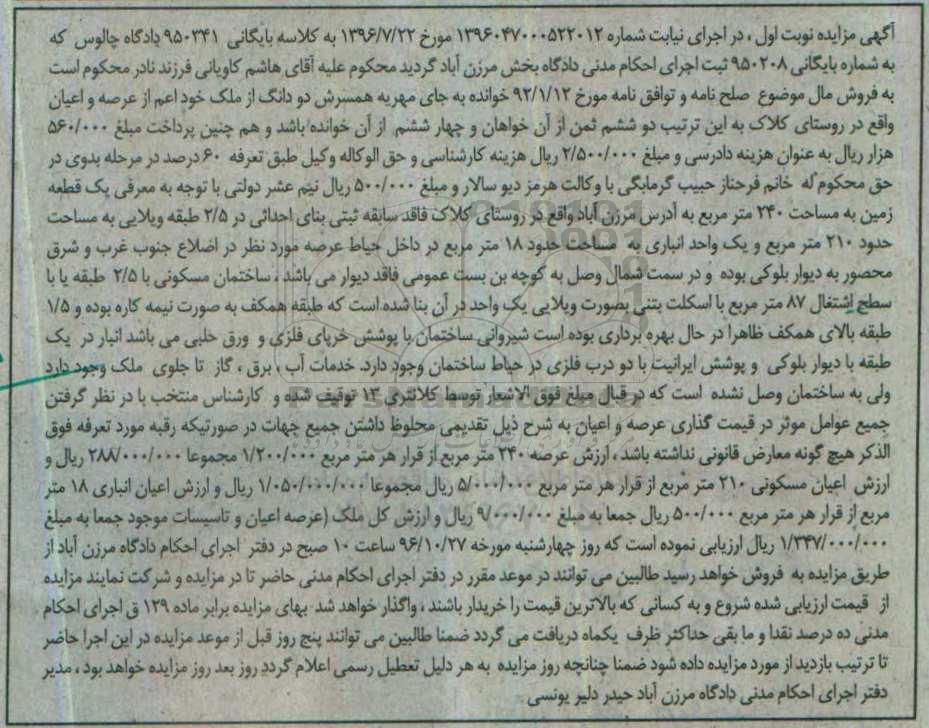 آگهی مزایده نوبت اول ، در اجرای نیابت شماره ۱۳۹۶۰۴۷۰۰۰۵۲۲۰۱۲ مورخ ۱۳۹۶/۷/۲۲ به کلاسه بایگانی ۹۵۰۳۴۱ دادگاه چالوس که
به شماره بایگانی ۹۵۰۲۰۸ ثبت اجرای احکام مدنی دادگاه بخش مرزن آباد گردید محکوم علیه آقای هاشم کاویانی فرزند نادر محکوم است
به فروش مال موضوع صلح نامه و توافق نامه مورخ ۹۲/۱/۱۲ خوانده به جای مهریه همسرش دو دانگ از ملک خود اعم از عرصه و اعیان
واقع در روستای کلاک به این ترتیب دو ششم ثمن از آن خواهان و چهار ششم از آن خوانده باشد و هم چنین پرداخت مبلغ ۵۶۰/۰۰۰
هزار ریال به عنوان هزینه دادرسی و مبلغ ۲/۵۰۰/۰۰۰ ریال هزینه کارشناسی و حق الوکاله وکیل طبق تعرفه ۶۰ درصد در مرحله بدوی در
حق محکوم له خانم فرحناز حبیب گرمابگی با وکالت هرمز دیو سالار و مبلغ ۵۰۰/۰۰۰ ریال نیم عشر دولتی با توجه به معرفی یک قطعه
زمین به مساحت ۲۴۰ متر مربع به آدرس مرزن آباد واقع در روستای کلاک فاقد سابقه ثبتی بنای احداثی در ۲/۵ طبقه ویلایی به مساحت
حدود ۲۱۰ متر مربع و یک واحد انباری به مساحت حدود ۱۸ متر مربع در داخل حیاط عرصه مورد نظر در اضلاع جنوب غرب و شرق
محصور به دیوار بلوکی بوده و در سمت شمال وصل به کوچه بن بست عمومی فاقد دیوار می باشد ، ساختمان مسکونی با ۲/۵ طبقه یا با
سطح اشتغال ۸۷ متر مربع با اسکلت بتنی بصورت ویلایی یک واحد در آن بنا شده است که طبقه همکف به صورت نیمه کاره بوده و ۱/۵
طبقه بالای همکف ظاهرا در حال بهره برداری بوده است شیروانی ساختمان با پوشش خرپای فلزی و ورق حلبی می باشد انبار در یک
طبقه با دیوار بلوکی و پوشش ایرانیت با دو درب فلزی در حیاط ساختمان وجود دارد. خدمات آب ، برق ، گاز تا جلوی ملک وجود دارد
ولی به ساختمان وصل نشده است که در قبال مبلغ فوق الاشعار توسط کلانتری ۱۳ توقیف شده و کارشناس منتخب با در نظر گرفتن
جمیع عوامل موثر در قیمت گذاری عرصه و اعیان به شرح ذیل تقدیمی محلوظ داشتن جمیع جهات در صورتیکه رقبه مورد تعرفه فوق
الذکر هیچ گونه معارض قانونی نداشته باشد ، ارزش عرصه ۲۴۰ متر مربع از قرار هر متر مربع ۱/۲۰۰/۰۰۰ مجموعا ۲۸۸/۰۰۰/۰۰۰ ریال و
ارزش اعیان مسکونی ۲۱۰ متر مربع از قرار هر متر مربع ۵/۰۰۰/۰۰۰ ریال مجموعا ۱/۰۵۰/۰۰۰/۰۰۰ ریال و ارزش اعیان انباری ۱۸ متر
مربع از قرار هر متر مربع ۵۰۰/۰۰۰ ریال جمعا به مبلغ ۹/۰۰۰/۰۰۰ ریال و ارزش کل ملک (عرصه اعیان و تاسیسات موجود جمعا به مبلغ
۱/۳۴۷/۰۰۰/۰۰۰ ریال ارزیابی نموده است که روز چهارشنبه مورخه ۹۶/۱۰/۲۷ ساعت ۱۰ صبح در دفتر اجرای احکام دادگاه مرزن آباد از
طریق مزایده به فروش خواهد رسید طالبین می توانند در موعد مقرر در دفتر اجرای احکام مدنی حاضر تا در مزایده و شرکت نمایند مزایده
از قیمت ارزیابی شده شروع و به کسانی که بالاترین قیمت را خریدار باشند ، واگذار خواهد شد بهای مزایده برابر ماده ۱۲۹ ق اجرای احکام
مدنی ده درصد نقدا و ما بقی حداکثر ظرف یکماه دریافت می گردد ضمنا طالبین می توانند پنج روز قبل از موعد مزایده در این اجرا حاضر
تا ترتیب بازدید از مورد مزایده داده شود ضمنا چنانچه روز مزایده به هر دلیل تعطیل رسمی اعلام گردد روز بعد روز مزایده خواهد بود ، مدیر
دفتر اجرای احکام مدنی دادگاه مرزن آباد حیدر دلیر یونسی